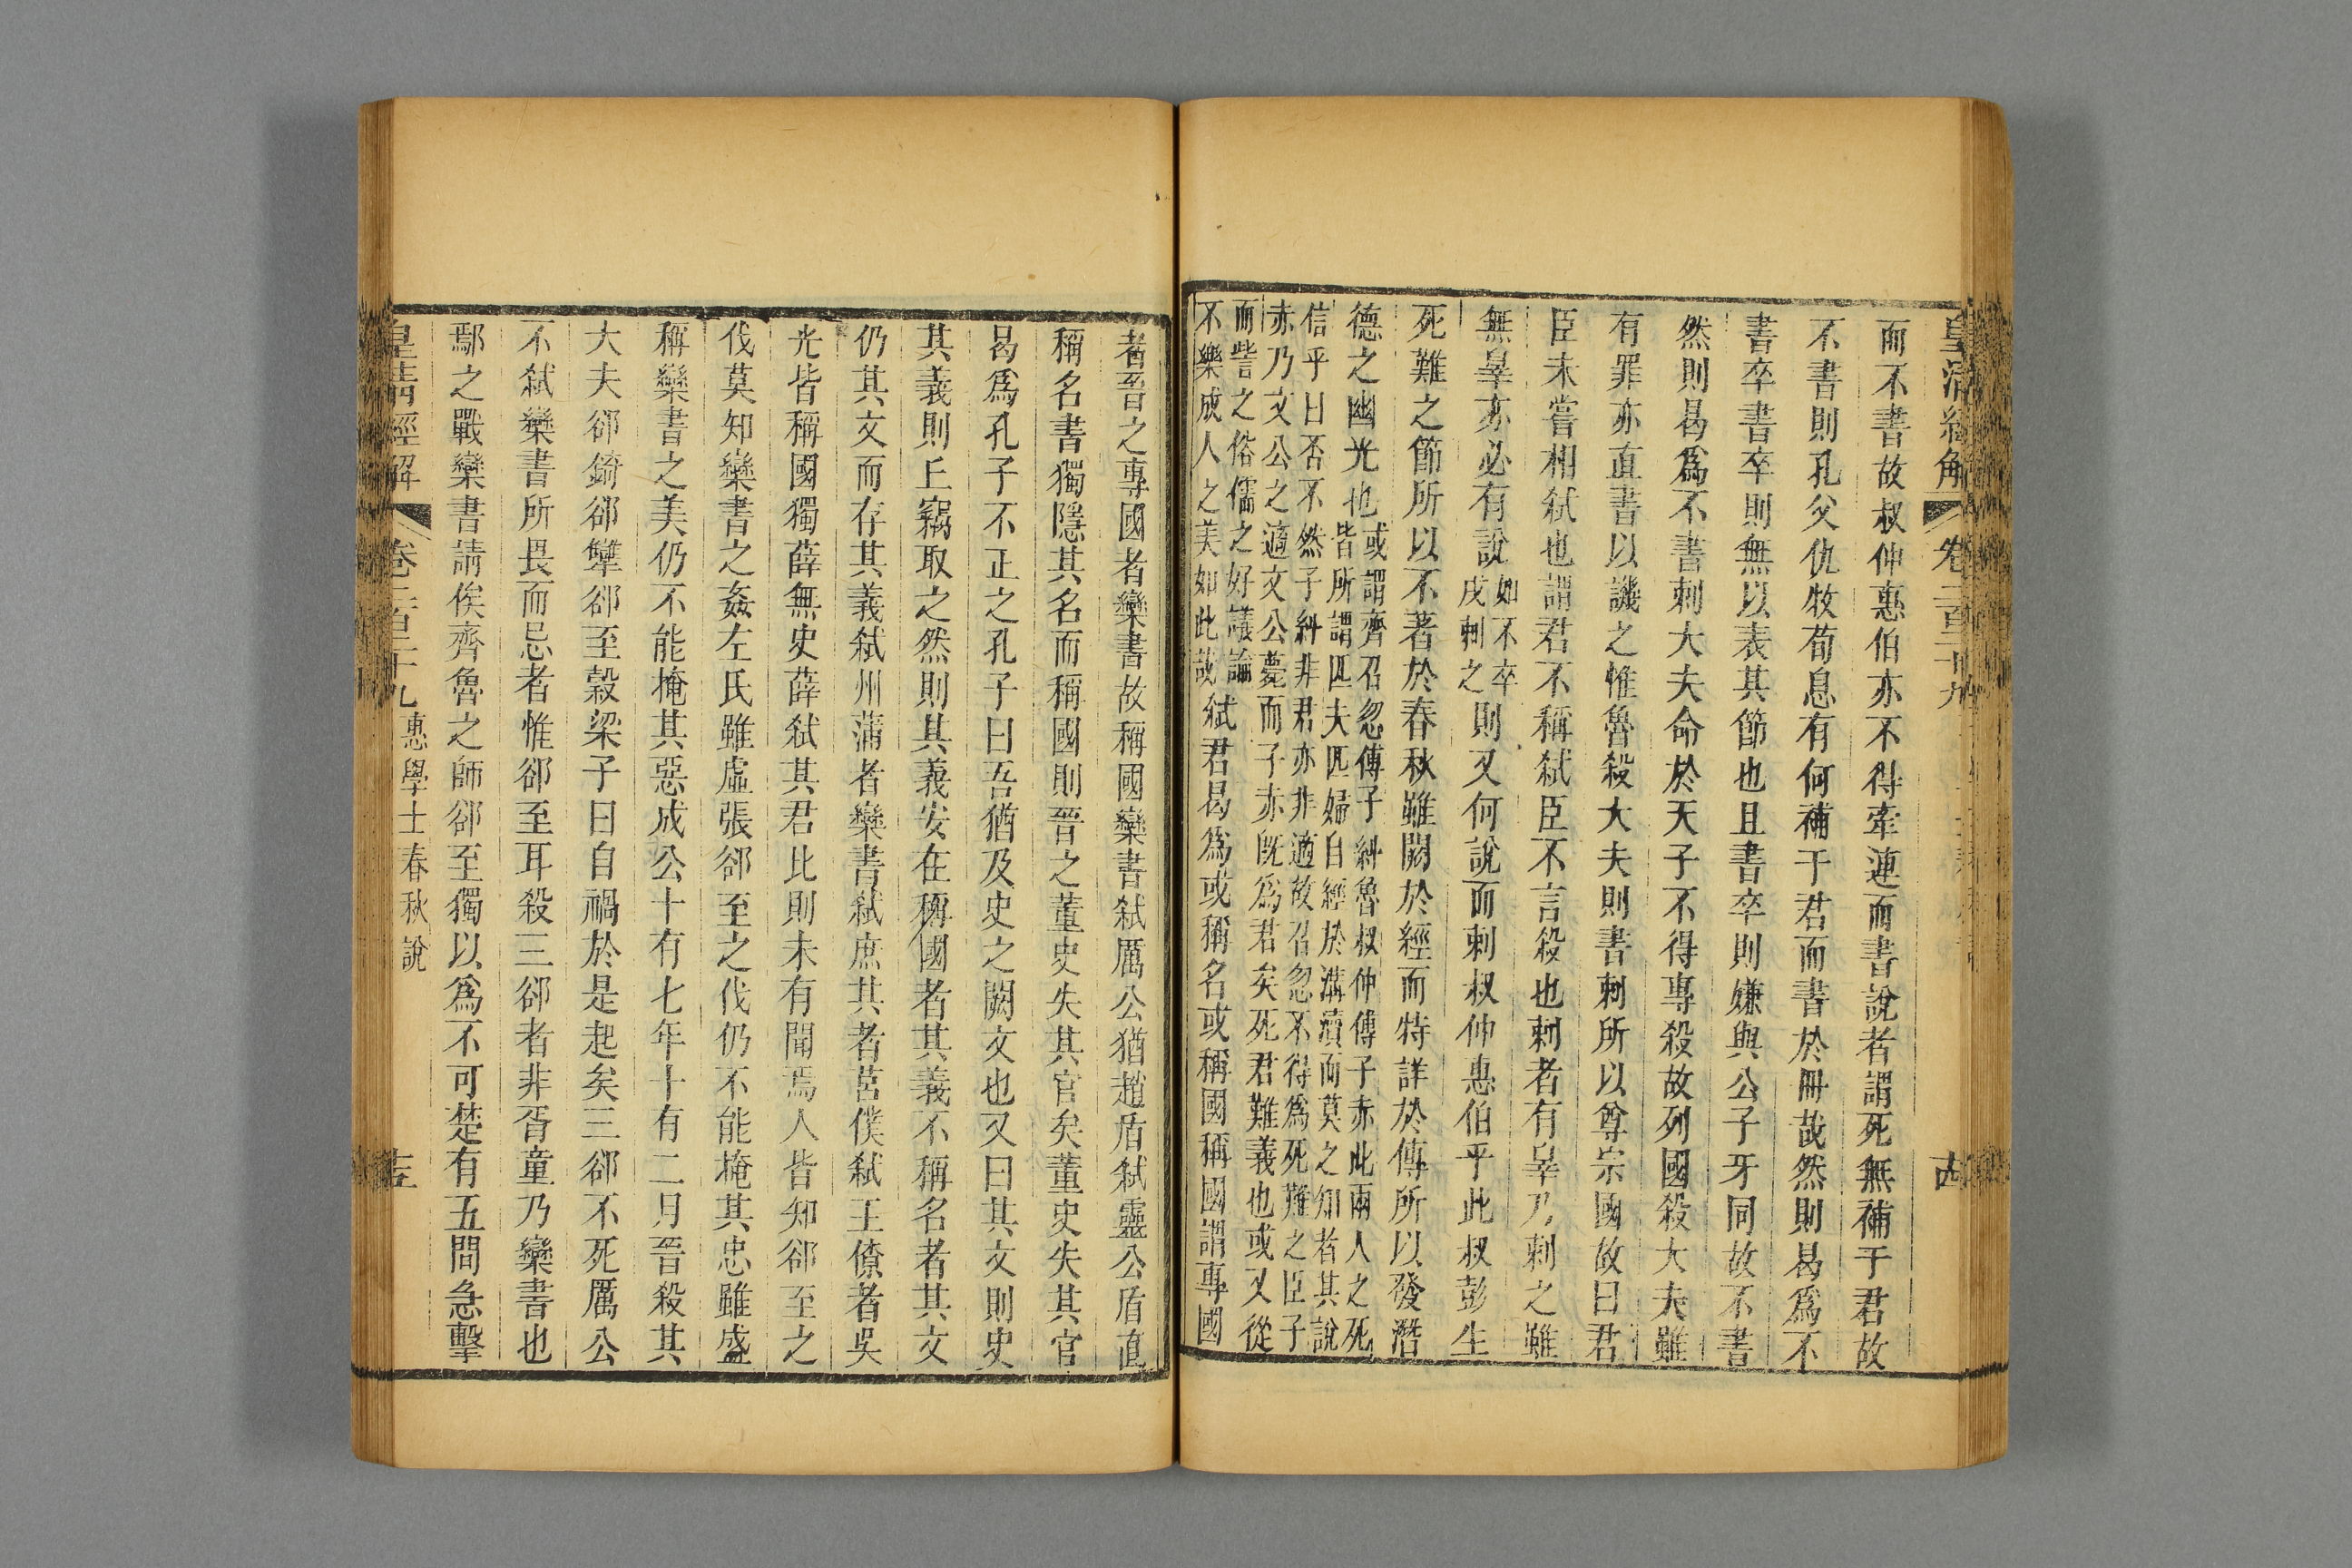 而不書故叔仲惠伯亦不得牽連而書說者謂死無補于君故
不書則孔父仇牧荀息有何補于君而書於冊哉然則曷爲不
書卒書卒則無以表其節也且書卒則嫌與公子牙同故不書
然則曷爲不書刺大夫命於天子不得專殺故列國殺大夫雖
有罪亦直書以譏之惟魯殺大夫則書刺所以尊宗國故曰君
臣未嘗相弒也謂君不稱弒臣不言殺也刺者有辠乃刺之雖
無辠亦必有說如不卒戍刺之則又何說而刺叔仲惠伯乎此叔彭生
死難之節所以不著於春秋雖闕於經而特詳於傳所以發潛
德之幽光也或謂齊召忽傅子糾魯叔仲傅子赤此兩人之死
皆所謂匹夫匹婦自經於溝瀆而莫之知者其說
信乎曰否不然子糾非君亦非適故召忽不得爲死難之臣子
赤乃文公之適文公薨而子赤既爲君矣死君難義也或又從
而訾之俗儒之好議論
不樂成人之美如此哉弒君曷爲或稱名或稱國稱國謂專國
皇清經解
卷二百二十九
十四
者晉之專國者欒書故稱國欒書弒厲公猶趙盾弒靈公盾直
稱名書獨隱其名而稱國則晉之董史失其官矣董史失其官
曷爲孔子不正之孔子曰吾猶及史之闕文也又曰其文則史
其義則丘竊取之然則其義安在稱國者其義不稱名者其文
仍其文而存其義弒州蒲者欒書弒庶其者莒僕弒王僚者吳
光皆稱國獨薛無史薛弒其君比則未有聞焉人皆知郤至之
伐莫知欒書之姦左氏雖虛張郤至之伐仍不能掩其忠雖盛
稱欒書之美仍不能掩其惡成公十有七年十有二月晉殺其
大夫郤錡郤犫郤至穀梁子曰自禍於是起矣三郤不死厲公
不弒欒書所畏而忌者惟郤至耳殺三郤者非胥童乃欒書也
鄢之戰欒書請俟齊魯之師郤至獨以爲不可楚有五間急擊
皇清經解
卷二百二十九
惠學士春秋說
十五